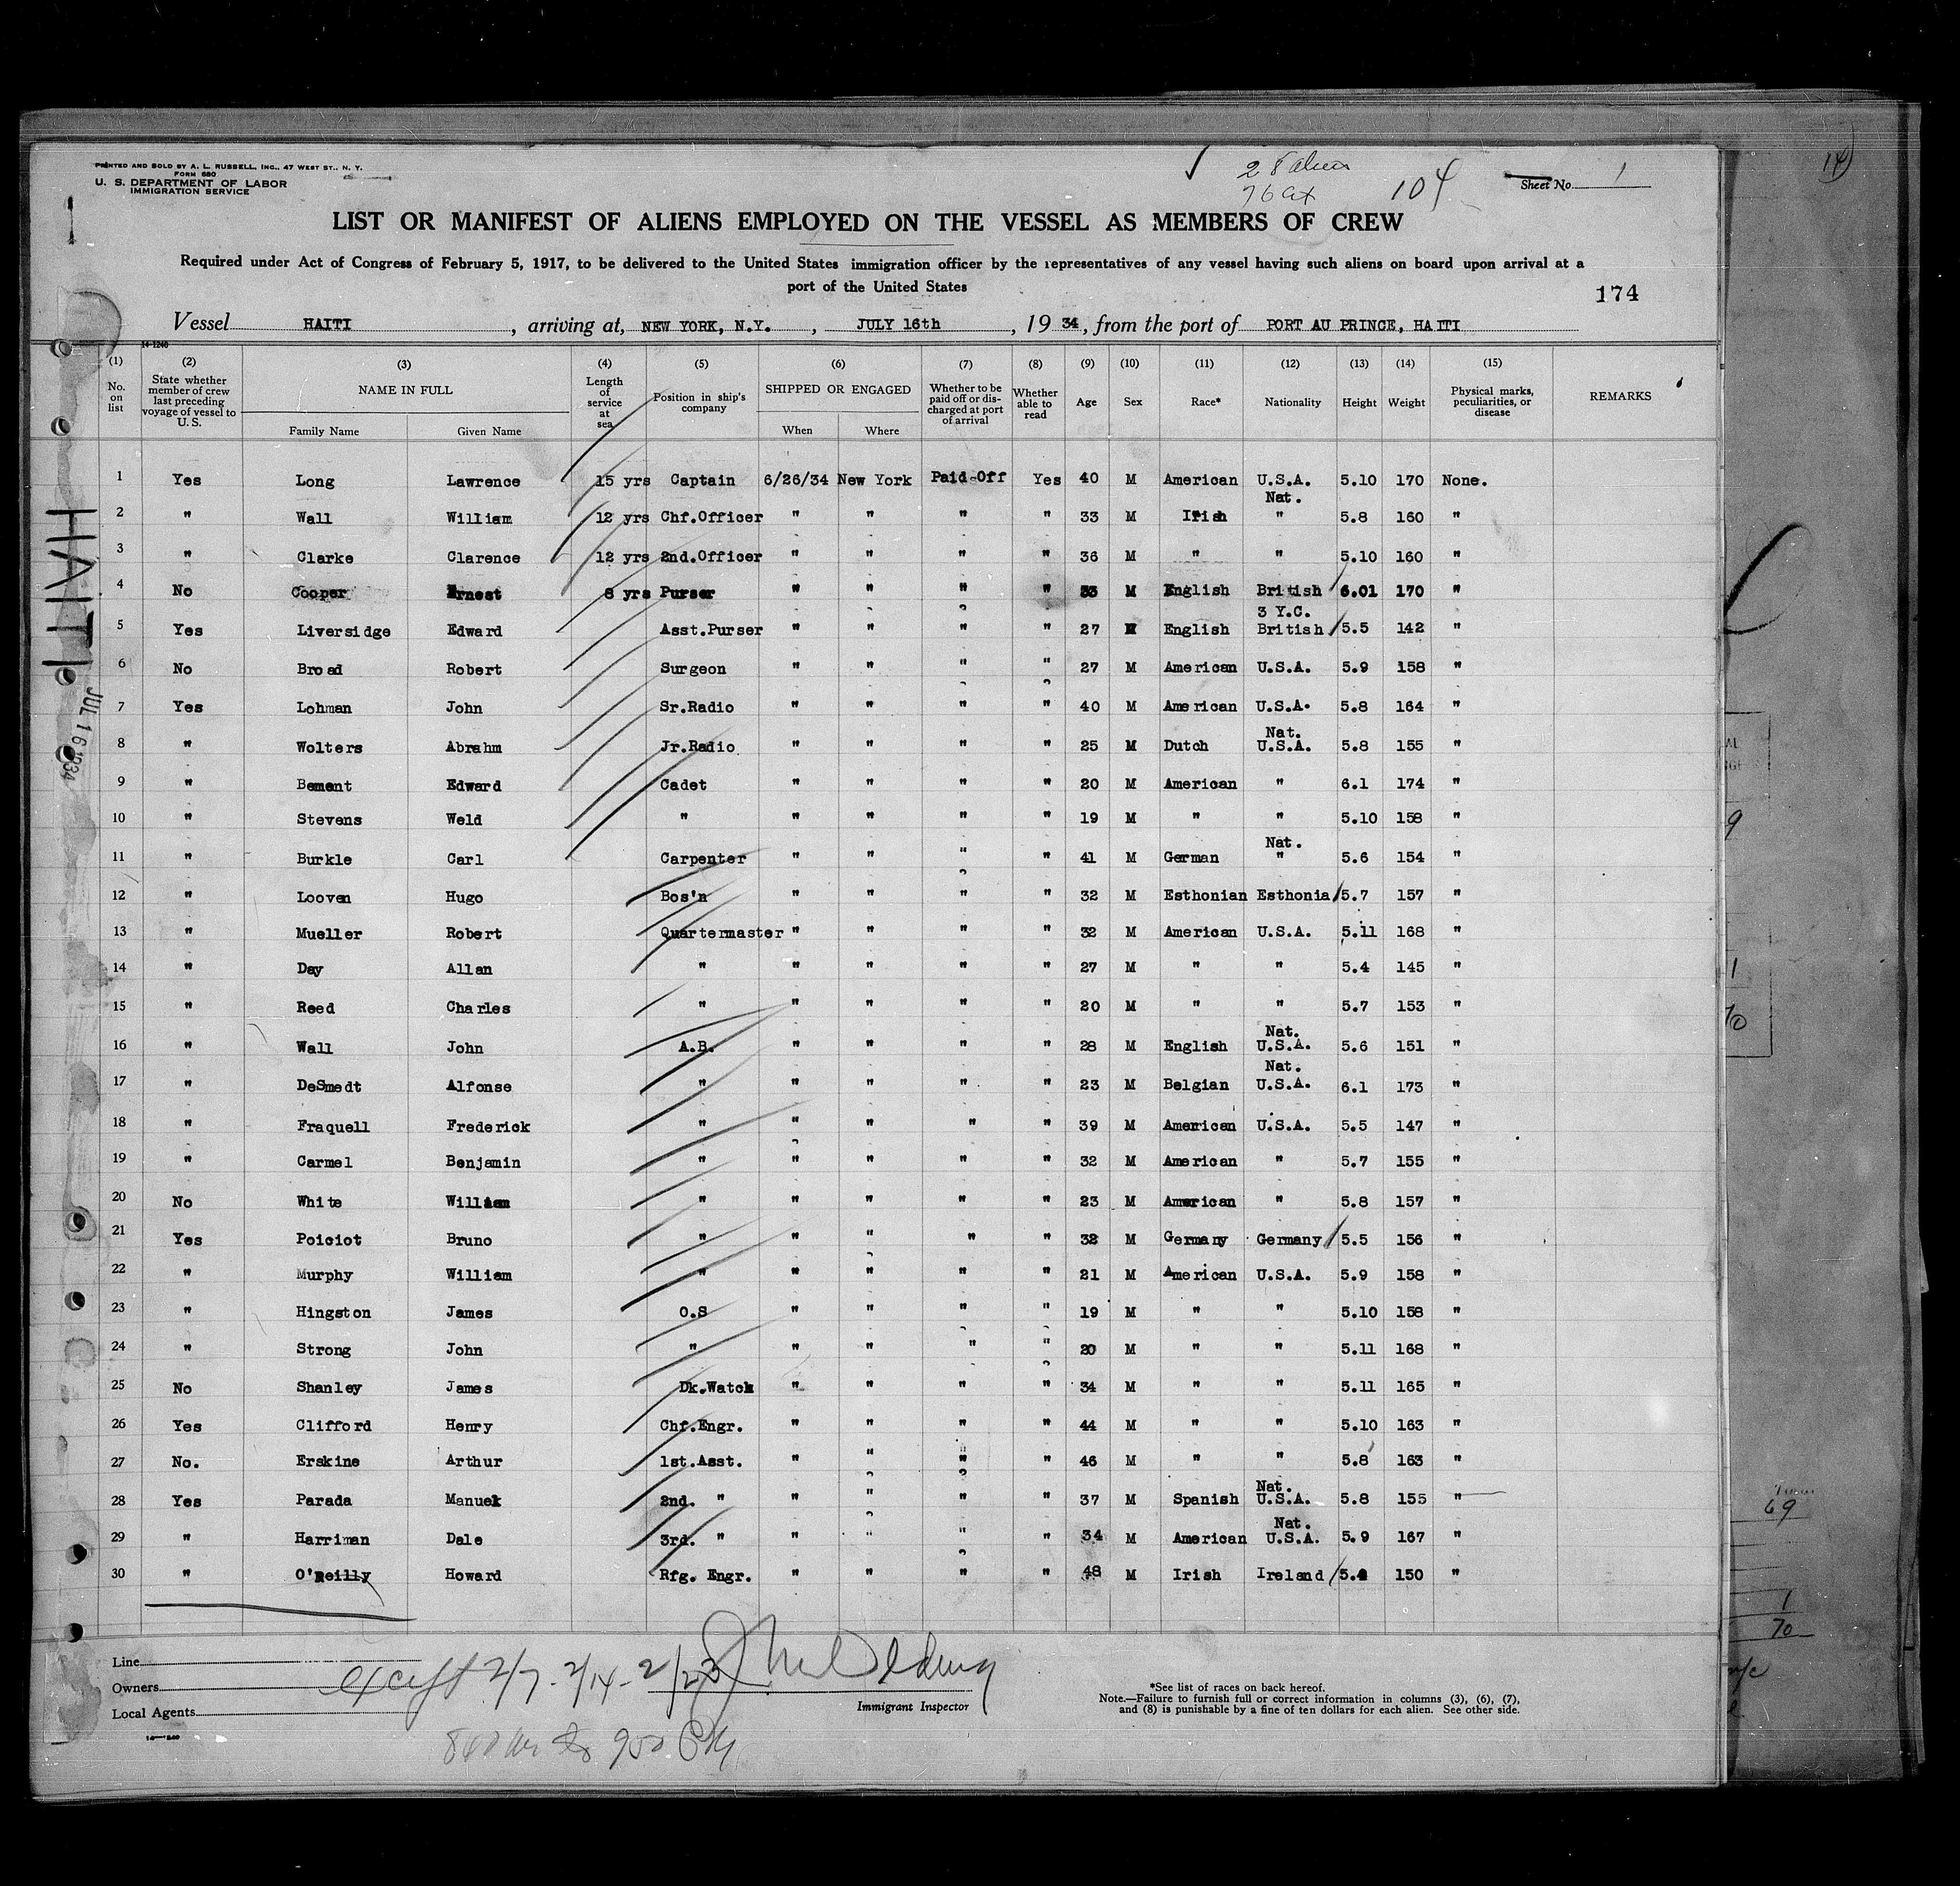 PRINTED AND SOLD BY A. L. RUSSELL, INC., 47 WEST ST., N. Y.
FORM 680
U. S. DEPARTMENT OF LABOR
IMMIGRATION SERVICE
104
Sheet No. 1
LIST OR MANIFEST OF ALIENS EMPLOYED ON THE VESSEL AS MEMBERS OF CREW
Required under Act of Congress of February 5, 1917, to be delivered to the United States immigration officer by the representatives of any vessel having such aliens on board upon arrival at a
port of the United States
174
Vessel HAITI, arriving at, NEW YORK, N.Y., JULY 16th, 19 34, from the port of PORT AU PRINCE, HAITI
14-1240
(1) (2) (3) (4) (5) (6) (7) (8) (9) (10) (11) (12) (13) (14) (15)
No. on list State whether member of crew last preceding voyage of vessel to U. S. NAME IN FULL Length of service at sea Position in ship's company SHIPPED OR ENGAGED Whether to be paid off or discharged at port of arrival Whether able to read Age Sex Race* Nationality Height Weight Physical marks, peculiarities, or disease REMARKS
Family Name Given Name When Where
1 Yes Long Lawrence 15 yrs Captain 6/26/34 New York Paid-Off Yes 40 M American U.S.A. 5.10 170 None.
2 " Wall William 12 yrs Chf.Officer " " " " 33 M Irish Nat. " 5.8 160 "
3 " Clarke Clarence 12 yrs 2nd.Officer " " " " 36 M " " 5.10 160 "
4 No Cooper Ernest 8 yrs Purser " " " " 33 M English British 6.01 170 "
5 Yes Liversidge Edward Asst.Purser " " " " 27 M English 3 Y.C. British 5.5 142 "
6 No Broad Robert Surgeon " " " " 27 M American U.S.A. 5.9 158 "
7 Yes Lohman John Sr.Radio " " " " 40 M American U.S.A. 5.8 164 "
8 " Wolters Abrahm Jr.Radio " " " " 25 M Dutch Nat. U.S.A. 5.8 155 "
9 " Bement Edward Cadet " " " " 20 M American " 6.1 174 "
10 " Stevens Weld " " " " " 19 M " " 5.10 158 "
11 " Burkle Carl Carpenter " " " " 41 M German Nat. " 5.6 154 "
12 " Looven Hugo Bos'n " " " " 32 M Esthonian Esthonia 5.7 157 "
13 " Mueller Robert Quartermaster " " " " 32 M American U.S.A. 5.11 168 "
14 " Day Allan " " " " " 27 M " " 5.4 145 "
15 " Reed Charles " " " " " 20 M " " 5.7 153 "
16 " Wall John A.B. " " " " 28 M English Nat. U.S.A. 5.6 151 "
17 " DeSmedt Alfonse " " " " " 23 M Belgian Nat. U.S.A. 6.1 173 "
18 " Fraquell Frederick " " " " " 39 M American U.S.A. 5.5 147 "
19 " Carmel Benjamin " " " " " 32 M American " 5.7 155 "
20 No White William " " " " " 23 M American " 5.8 157 "
21 Yes Poiciot Bruno " " " " " 32 M Germany Germany 5.5 156 "
22 " Murphy William " " " " " 21 M American U.S.A. 5.9 158 "
23 " Hingston James O.S " " " " 19 M " " 5.10 158 "
24 " Strong John " " " " " 20 M " " 5.11 168 "
25 No Shanley James Dk.Watch " " " " 34 M " " 5.11 165 "
26 Yes Clifford Henry Chf.Engr. " " " " 44 M " " 5.10 163 "
27 No. Erskine Arthur 1st.Asst. " " " " 46 M " " 5.8 163 "
28 Yes Parada Manuel 2nd. " " " " " 37 M Spanish Nat. U.S.A. 5.8 155 "
29 " Harriman Dale 3rd. " " " " " 34 M American Nat. U.S.A. 5.9 167 "
30 " O'Reilly Howard Rfg. Engr. " " " " 48 M Irish Ireland 150 "
HAITI
JUL 16 1934
Line
Owners
Local Agents
except 2/7 - 2/14 - 2/23
Immigrant Inspector
*See list of races on back hereof.
Note.—Failure to furnish full or correct information in columns (3), (6), (7),
and (8) is punishable by a fine of ten dollars for each alien. See other side.
14—1240
69
1
70